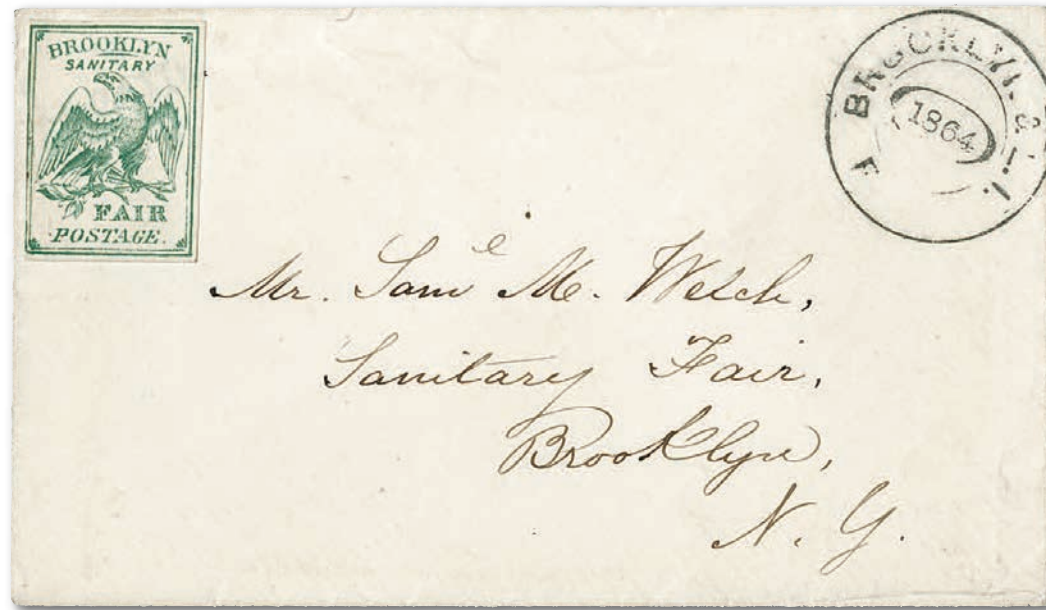 BROOKLYN
SANITARY
FAIR
POSTAGE.
BROOKLYN & L.I.
1864
F
Mr. Saml M. Welch,
Sanitary Fair,
Brooklyn,
N. Y.